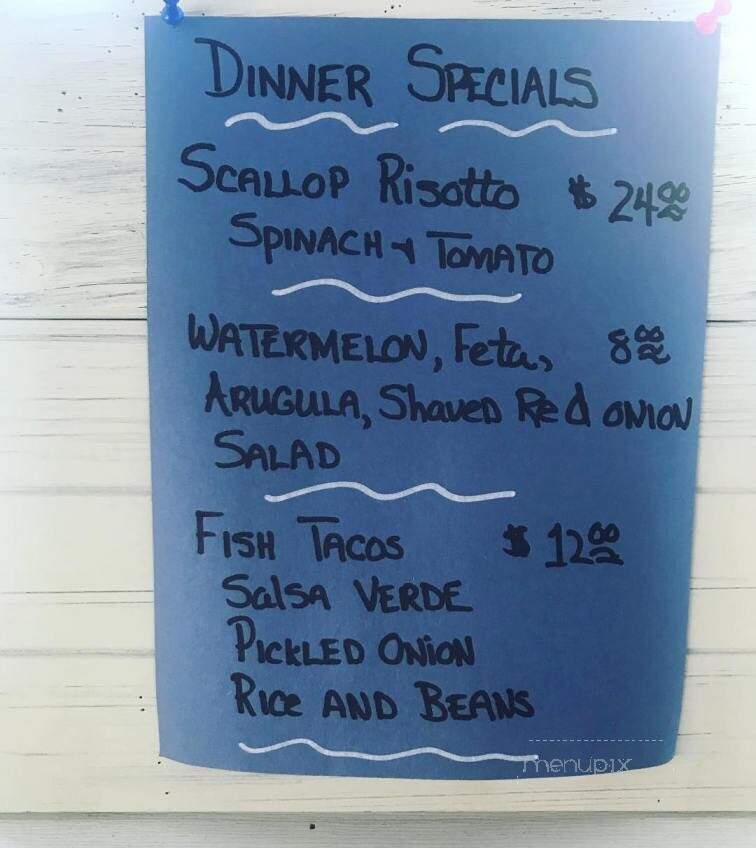 DINNER SPECIALS
SCALLOP Risotto $ 24.00
SPINACH & TOMATO
WATERMELON, Feta, 8.00
ARUGULA, Shaved Red ONION
SALAD
FISH TACOS $ 12.00
Salsa VERDE
PICKLED ONION
Rice AND BEANS
menupix